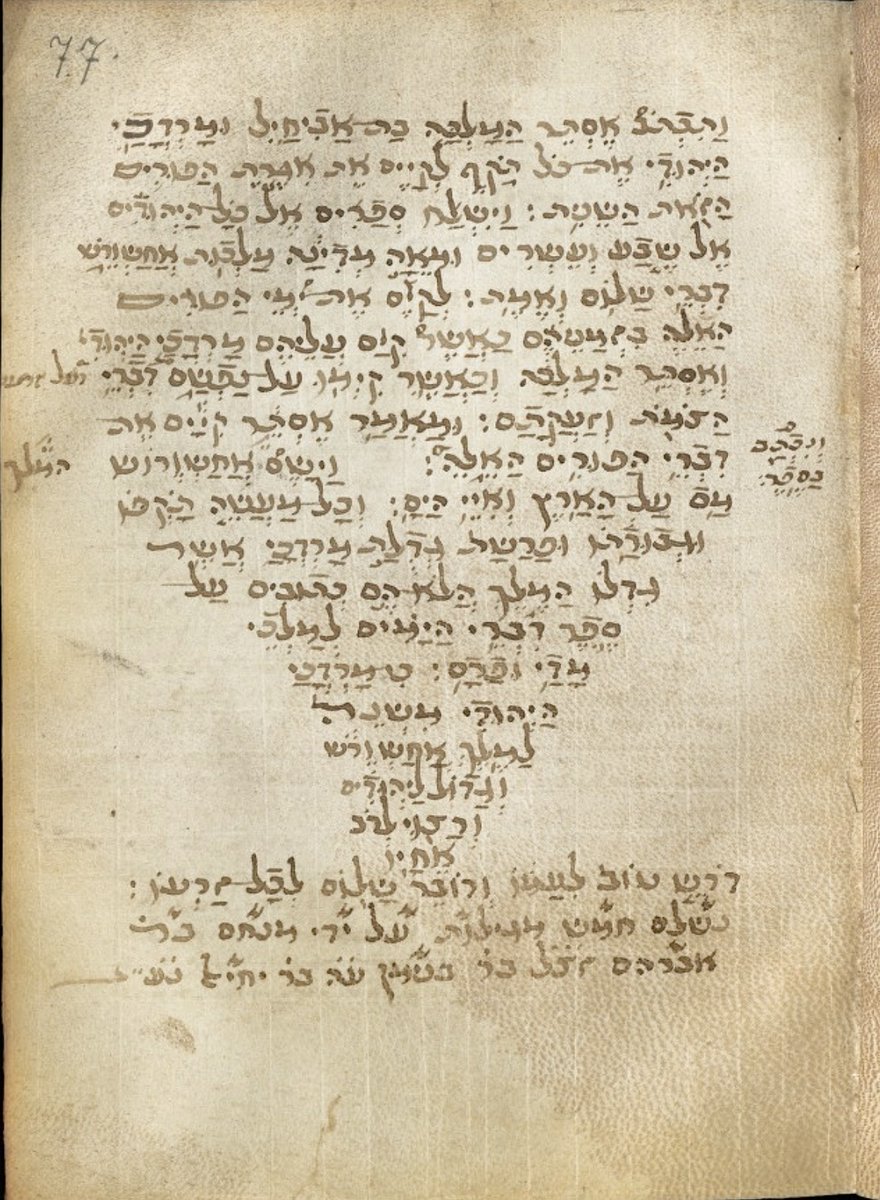 77.
ותכתב אסתר המלכה בת אביחיל ומרדכי
היהודי את כל תקף לקיים את אגרת הפורים
הזאת השנית: וישלח ספרים אל כל היהודים
אל שבע ועשרים ומאה מדינה מלכות אחשורש
דברי שלום ואמת: לקים את ימי הפורים
האלה בזמניהם כאשר קים עליהם מרדכי היהודי
ואסתר המלכה וכאשר קימו על נפשם דברי
הצומת וזעקתם: ומאמר אסתר קיים את
ונכתב
דברי הפורים האלה: וישם אחשורוש המלך
בספר
מס על הארץ ואיי הים: וכל מעשה תקפו
וגבורתו ופרשת גדלת מרדכי אשר
גדלו המלך הלא הם כתובים על
ספר דברי הימים למלכי
מדי ופרס: כי מרדכי
היהודי משנה
למלך אחשורש
וגדול ליהודים
ורצוי לרוב
אחיו
דורש טוב לעמו ודובר שלום לכל זרעו:
נשלם חמש מגילות על ידי מנחם בר
אברהם זצל בר בנימן בר יחיאל